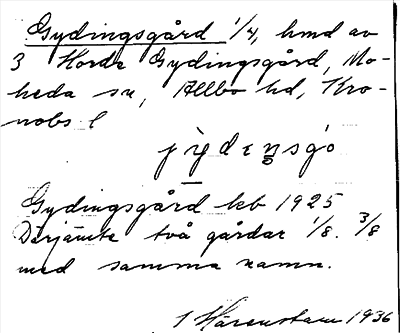 Gydingsgård 1/4, hmd av
3 Horda Gydingsgård, Mo-
heda sn, Allbo hd, Kro-
nobs l
Gydingsgård leb 1925
Därjämte två gårdar 1/8. 3/8
med samma namn.
Härenstam 1936